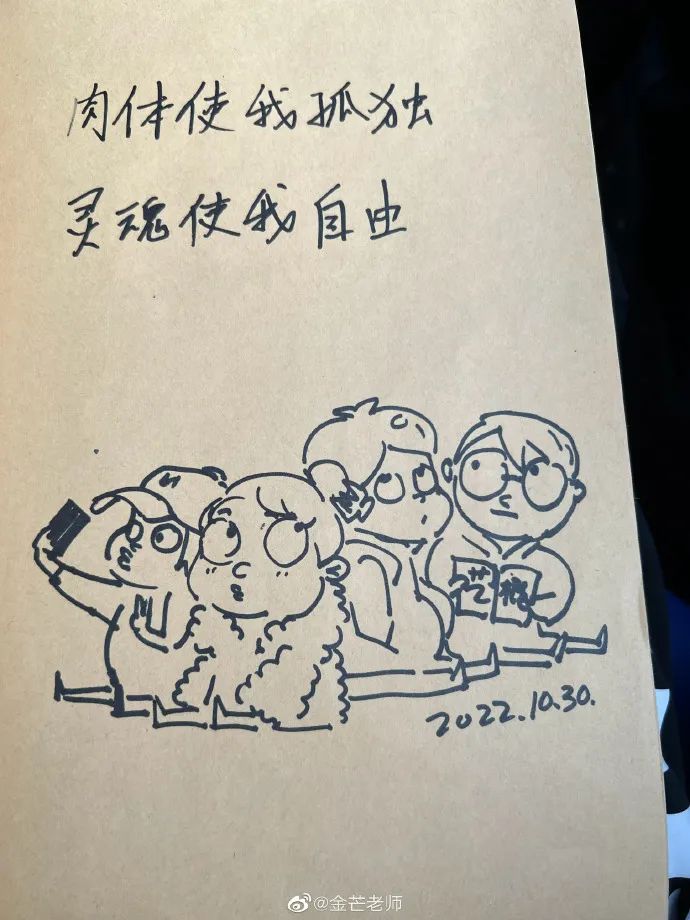 肉体使我孤独
灵魂使我自由
2022.10.30.
@金芒老师